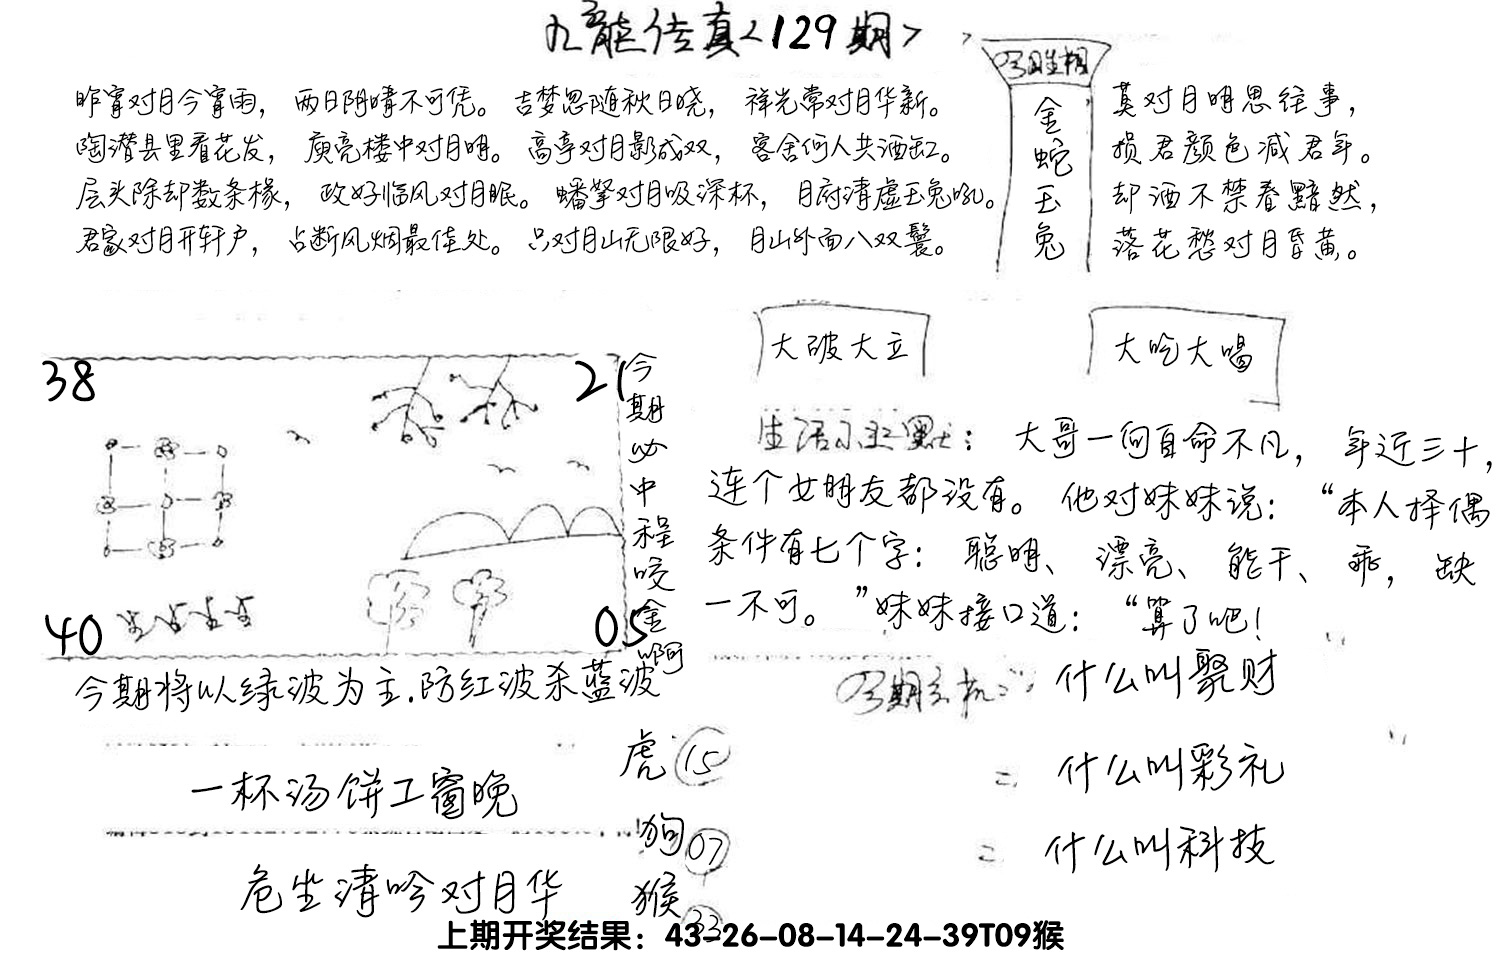 九龙传真<129期>
昨宵对月今宵雨， 两日阴晴不可凭。 吉梦忽随秋日晓， 祥光常对月华新。
陶潜县里看花发， 庾亮楼中对月明。 高亭对月影成双， 客舍何人共酒缸。
层头除却数条椽， 政好临风对月眠。 蟠拏对月吸深杯， 月府清虚玉兔吼。
君家对月开轩户， 占断风烟最佳处。 只对月山无限好， 月山外面八双鬟。
金蛇玉兔
莫对月明思往事，
损君颜色减君年。
却酒不禁春黯然，
落花愁对月昏黄。
38
21
40
05
今期必中程咬金啊
大破大立
大吃大喝
： 大哥一向自命不凡， 年近三十，
连个女朋友都没有。 他对妹妹说： “本人择偶
条件有七个字： 聪明、 漂亮、 能干、 乖， 缺
一不可。 ”妹妹接口道： “算了吧！
今期将以绿波为主.防红波杀蓝波
什么叫聚财
什么叫彩礼
什么叫科技
一杯汤饼工窗晚
危坐清吟对月华
虎 15
狗 07
猴 33
上期开奖结果：43-26-08-14-24-39T09猴